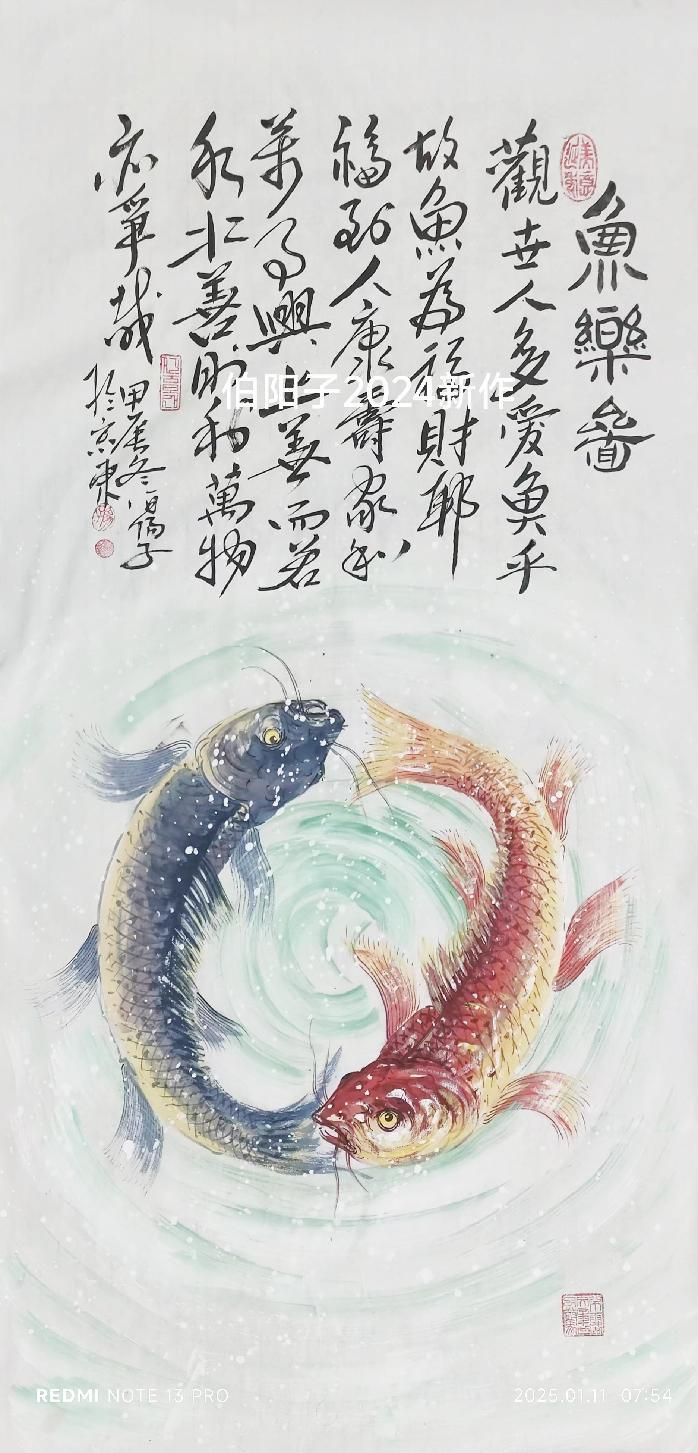 魚樂圖
觀世人多愛魚乎
故魚為福財耶
福到人康壽家和
萬事興上善而若
水北善財利萬物
亦爭哉
甲辰冬伯陽子
於京東
伯阳子2024新作
REDMI NOTE 13 PRO
2025.01.11 07:54